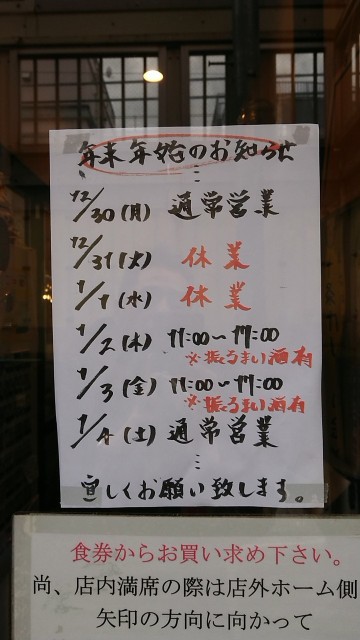 年末年始のお知らせ
⋮
12/30(月) 通常営業
12/31(火) 休業
1/1(水) 休業
1/2(木) 11:00〜17:00
※振るまい酒有
1/3(金) 11:00〜17:00
※振るまい酒有
1/4(土) 通常営業
⋮
宜しくお願い致します。
食券からお買い求め下さい。
尚、店内満席の際は店外ホーム側
矢印の方向に向かって